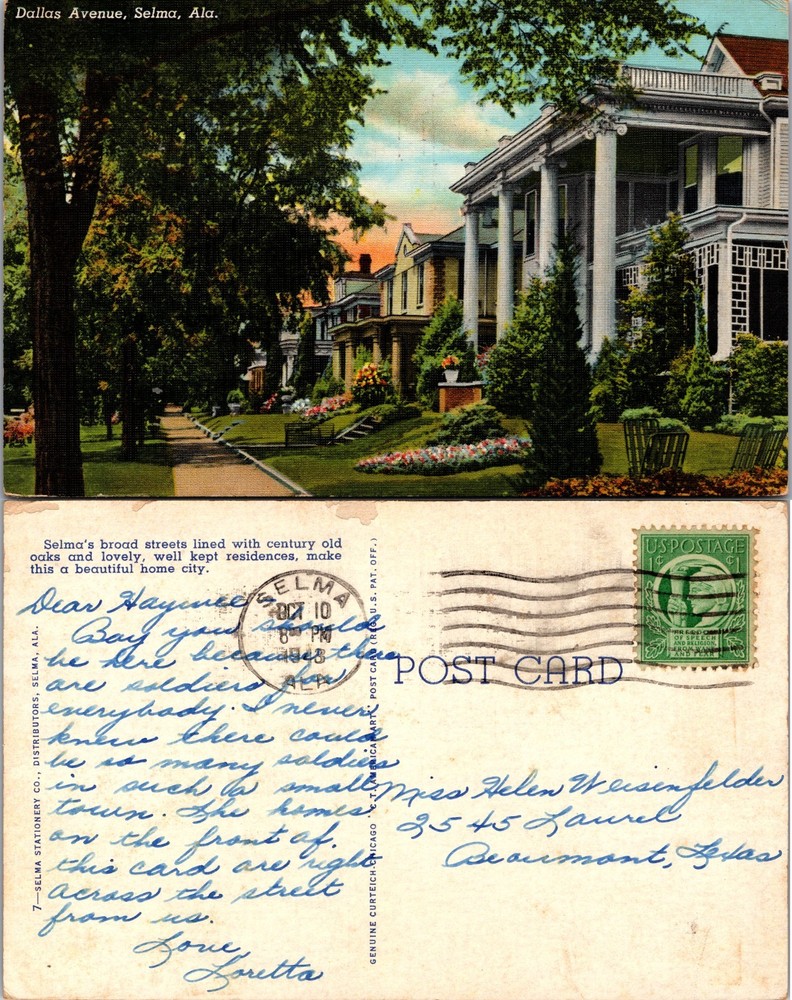 Dallas Avenue, Selma, Ala.
Selma's broad streets lined with century old
oaks and lovely, well kept residences, make
this a beautiful home city.
SELMA
OCT 10
8 PM
1943
ALA
U.S. POSTAGE
1¢ 1¢
FREEDOM
OF SPEECH
AND RELIGION,
FROM WANT
AND FEAR
POST CARD
Dear
Boy you should
be here because there
are soldiers for
everybody. I never
knew there could
be so many soldiers
in such a small
town. The homes
on the front of
this card are right
across the street
from us.
Love,
Loretta
Miss Helen Weisenfelder
2545 Laurel
Beaumont, Texas
7—SELMA STATIONERY CO., DISTRIBUTORS, SELMA, ALA.
GENUINE CURTEICH-CHICAGO "C.T. AMERICAN ART" POST CARD (REG. U.S. PAT. OFF.)